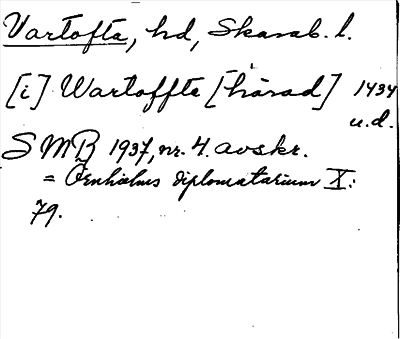 Vartofta, hd, Skarab. l.
[i] Wartoffta [härad] 1434
u.d.
SMB 1937, nr. 4. avskr.
= Örnhielms diplomatarium X:
79.